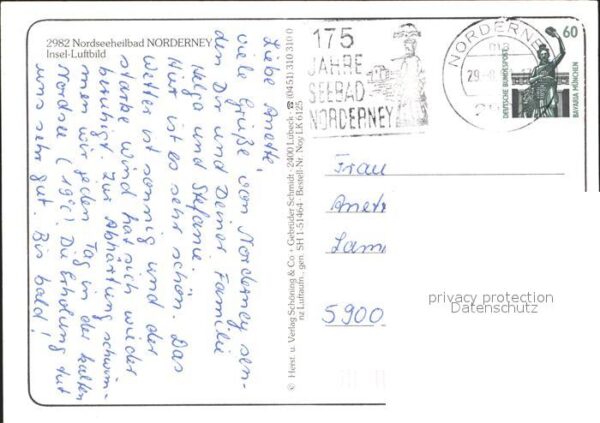 2982 Nordseeheilbad NORDERNEY
Insel-Luftbild
Liebe Anette,
viele Grüße von Norderney sen-
den Dir und Deiner Familie
Helga und Stefanie.
Hier ist es sehr schön. Das
Wetter ist sonnig und der
starke Wind hat sich wieder
beruhigt. Zur Abhärtung schwim-
men wir jeden Tag in der kalten
Nordsee (19°C). Die Erholung tut
uns sehr gut. Bis bald!
© Herst. u. Verlag Schöning & Co + Gebrüder Schmidt · 2400 Lübeck · ☎ (0451) 310 310 0
nz Luftaufn., gen. SH 1-51464 · Bestell-Nr. Noy LK 6125
175
JAHRE
SEEBAD
NORDERNEY
NORDERNEY
29
60
DEUTSCHE BUNDESPOST
BAVARIA MÜNCHEN
Frau
Anet
Lam
5900
privacy protection
Datenschutz